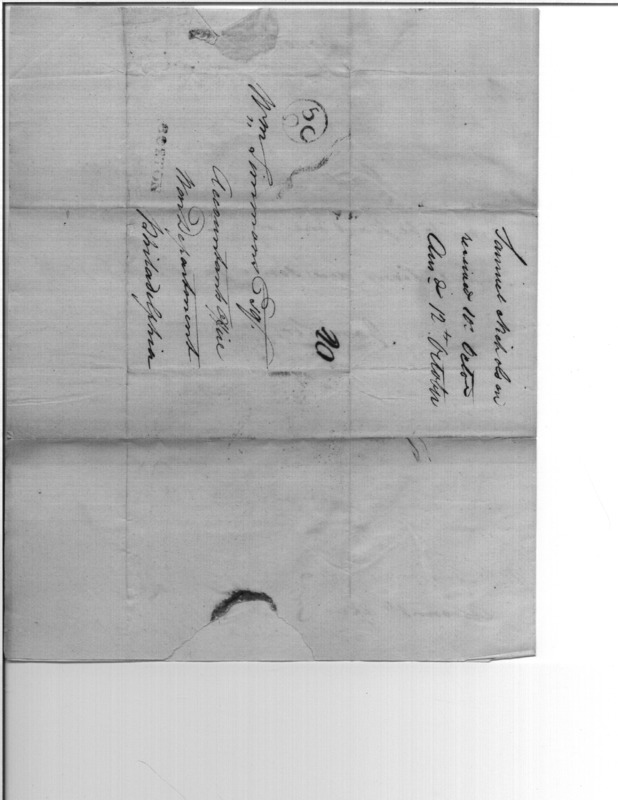 Samuel Nicholson
received 10th Octor
Ansd 12th October
50
20
Wm Simmons Esqr.
Accountants Office
War Department
Philadelphia
BOSTON